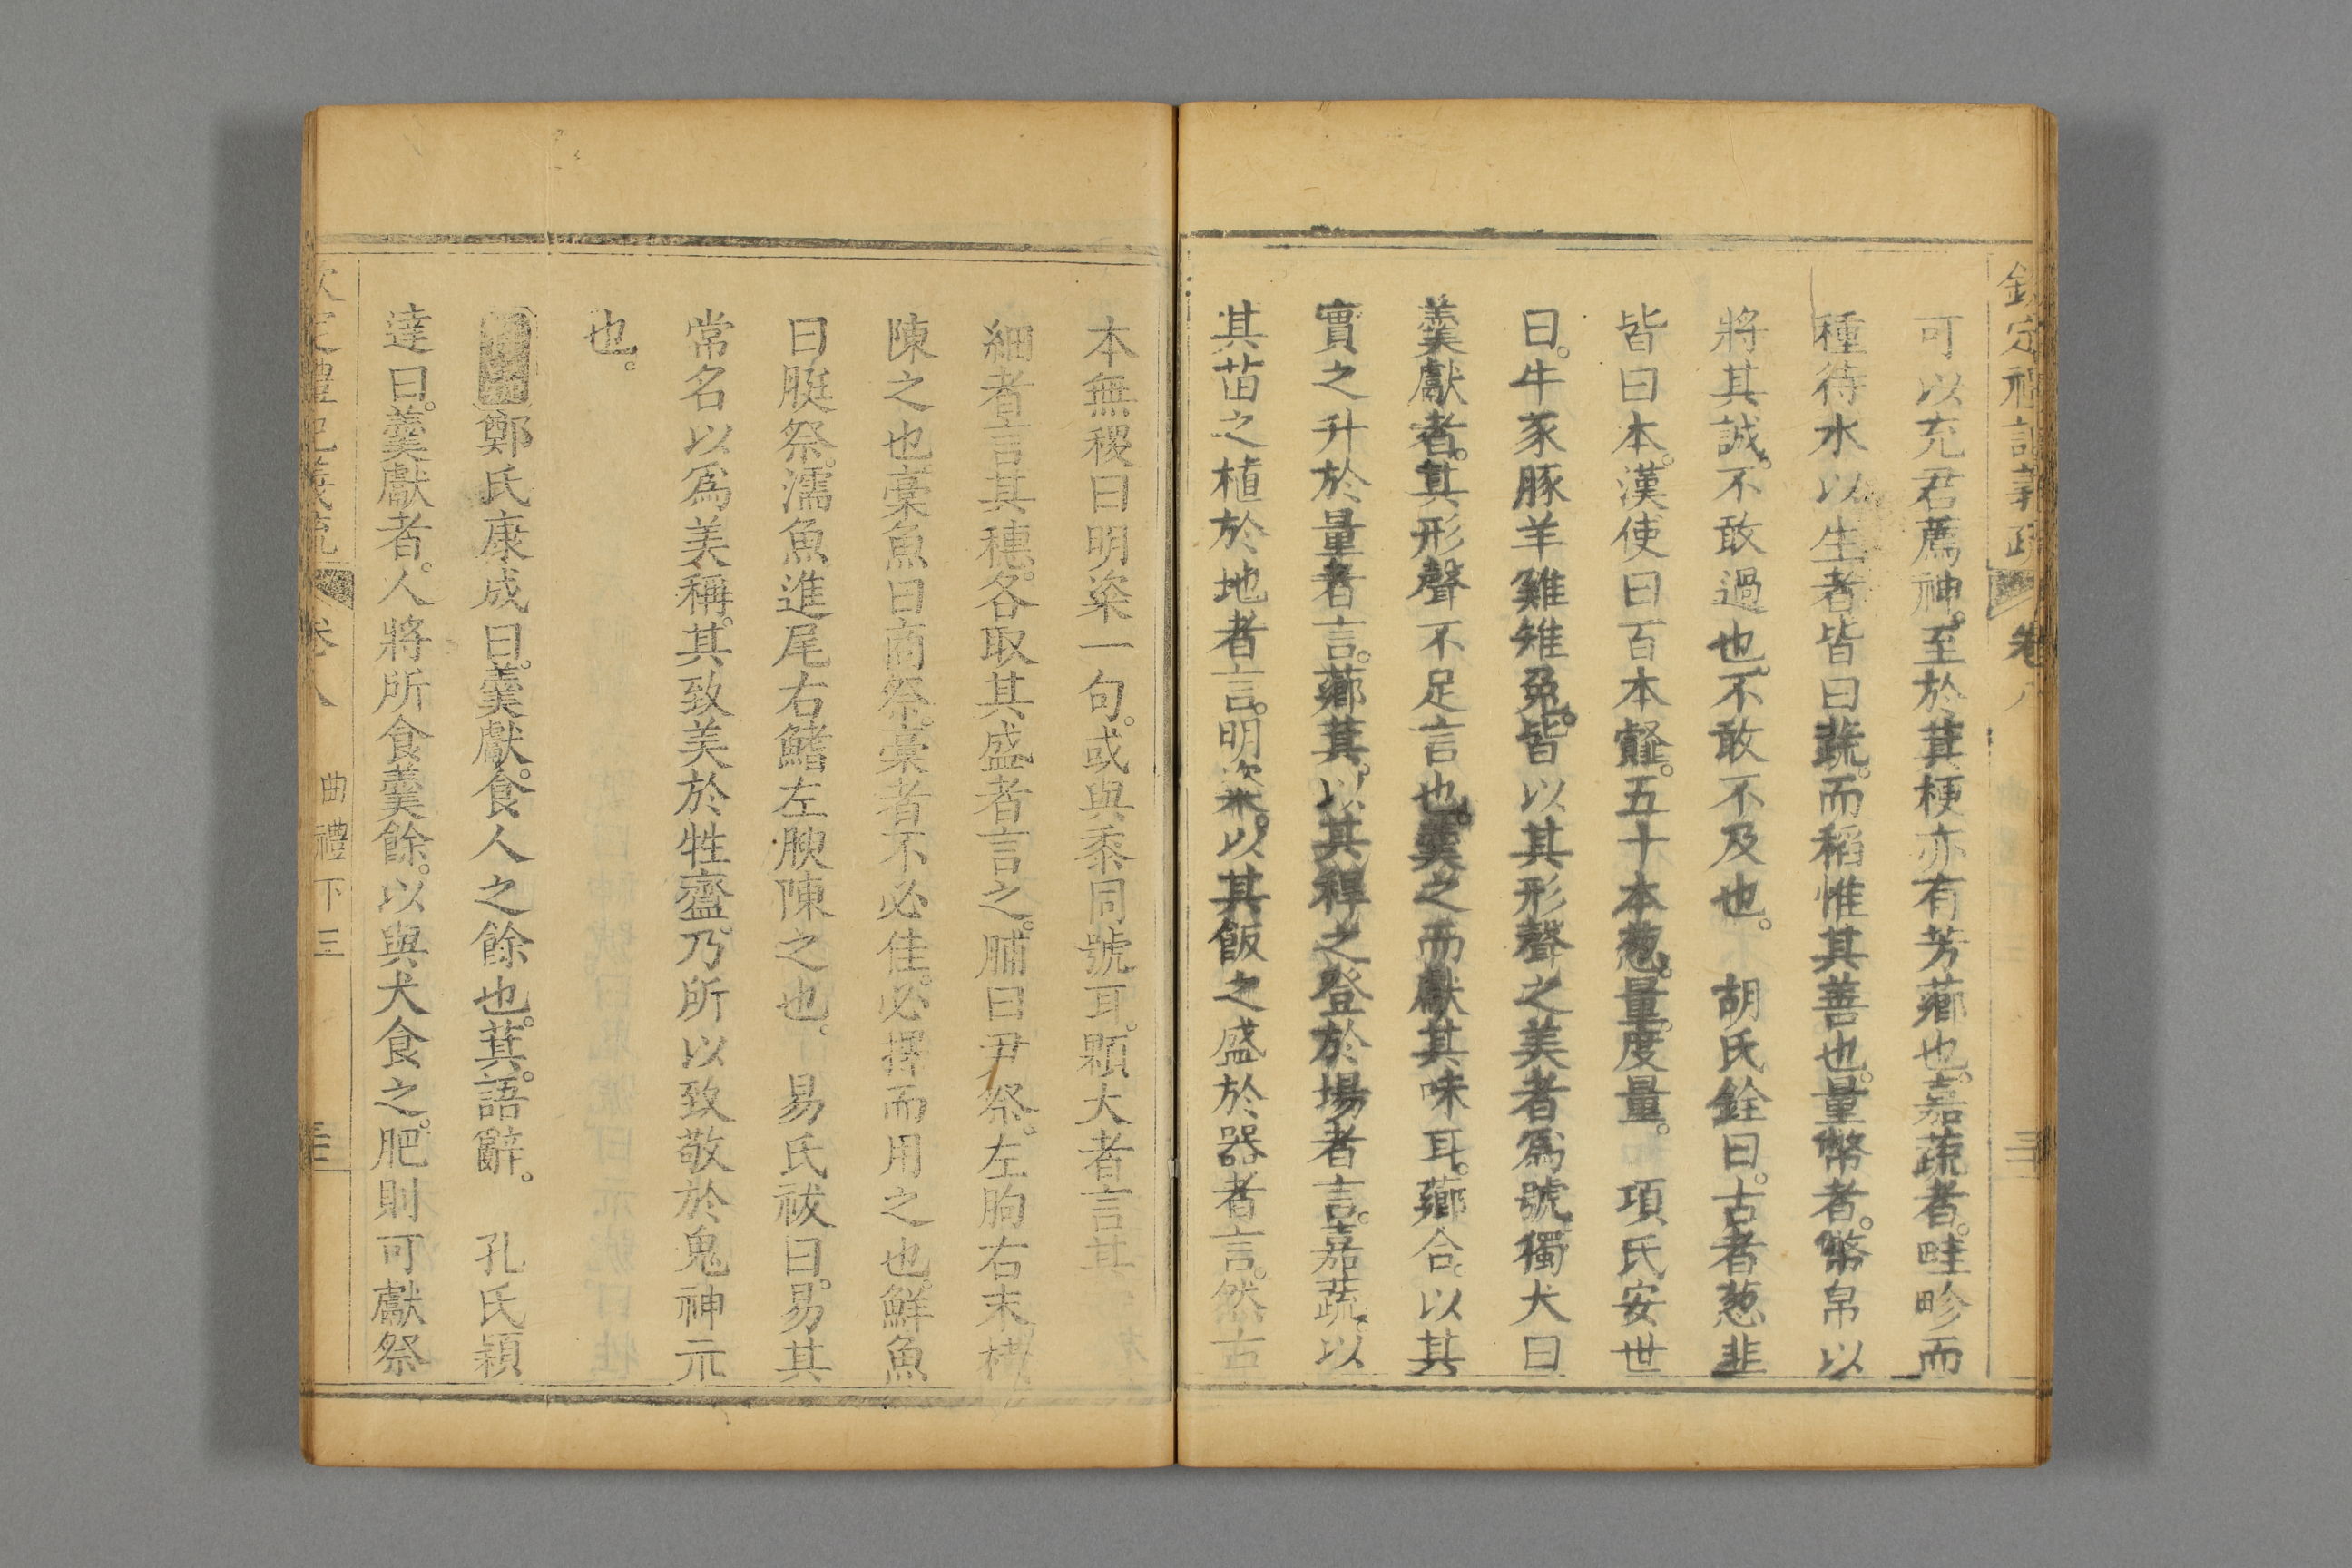 可以充君薦神。至於萁梗亦有芳薌也。嘉蔬者。畦畛而
種待水以生者皆曰蔬。而稻惟其善也。量幣者。幣帛以
將其誠。不敢過也。不敢不及也。 胡氏銓曰。古者葱韭
皆曰本。漢使曰百本䪥。五十本葱。量。度量。 項氏安世
曰。牛豕豚羊雞雉兔。皆以其形聲之美者爲號獨犬曰
羹獻者。其形聲不足言也。羹之而獻其味耳。薌合。以其
實之升於量者言。薌萁。以其稈之登於場者言。嘉蔬。以
其苗之植於地者言。明粢。以其飯之盛於器者言。然古
本無稷曰明粢一句。或與黍同號耳。顆大者言其
細者言其穗。各取其盛者言之。脯曰尹祭。左朐右末横
陳之也槀魚曰商祭。槀者不必佳。必擇而用之也。鮮魚
曰脡祭。濡魚進尾右鰭左腴陳之也。 易氏祓曰。易其
常名以爲美稱。其致美於牲齍。乃所以致敬於鬼神示
也。
鄭氏康成曰。羹獻。食人之餘也。萁。語辭。 孔氏穎
達曰。羹獻者。人將所食羹餘。以與犬食之。肥則可獻祭
欽定禮記義疏 卷八 曲禮下三